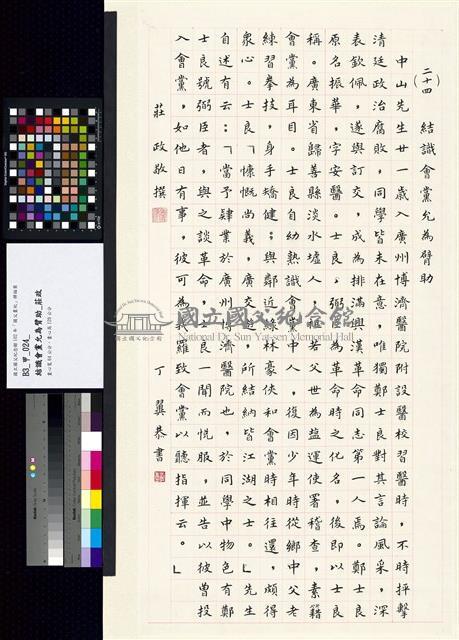 (二十四)
結識會黨允為臂助
中山先生廿一歲入廣州博濟醫院附設醫校習醫時，不時抨擊
清廷政治腐敗，同學皆未在意，唯獨鄭士良對其言論風采，深
表欽佩，遂與訂交，成為排滿興漢革命同志第一人焉。鄭士良
原名振華，字安醫。士良、弼臣為革命時之化名，後即以士良
稱。廣東省歸善縣淡水墟人，
會黨為耳目。士良自幼熟識會中人，復因少年時從鄉中父老
練習拳技，身手矯健；與鄰近綠林豪俠和會黨時相往還，頗得
眾心。士良「慷慨尚義，廣交遊，所結納皆江湖之士。」先生
自述有云：「當予肄業於廣州博濟醫院也，於同學中物色有鄭
士良號弼臣者，與之談革命，士良一聞而悅服，並告以彼曾投
入會黨，如他日有事，彼可為我羅致會黨以聽指揮云。」
莊政敬撰
丁巽恭書
國立國父紀念館
National Dr. Sun Yat-sen Memorial Hall
B3_甲_024_
結識會黨允為臂助_莊政